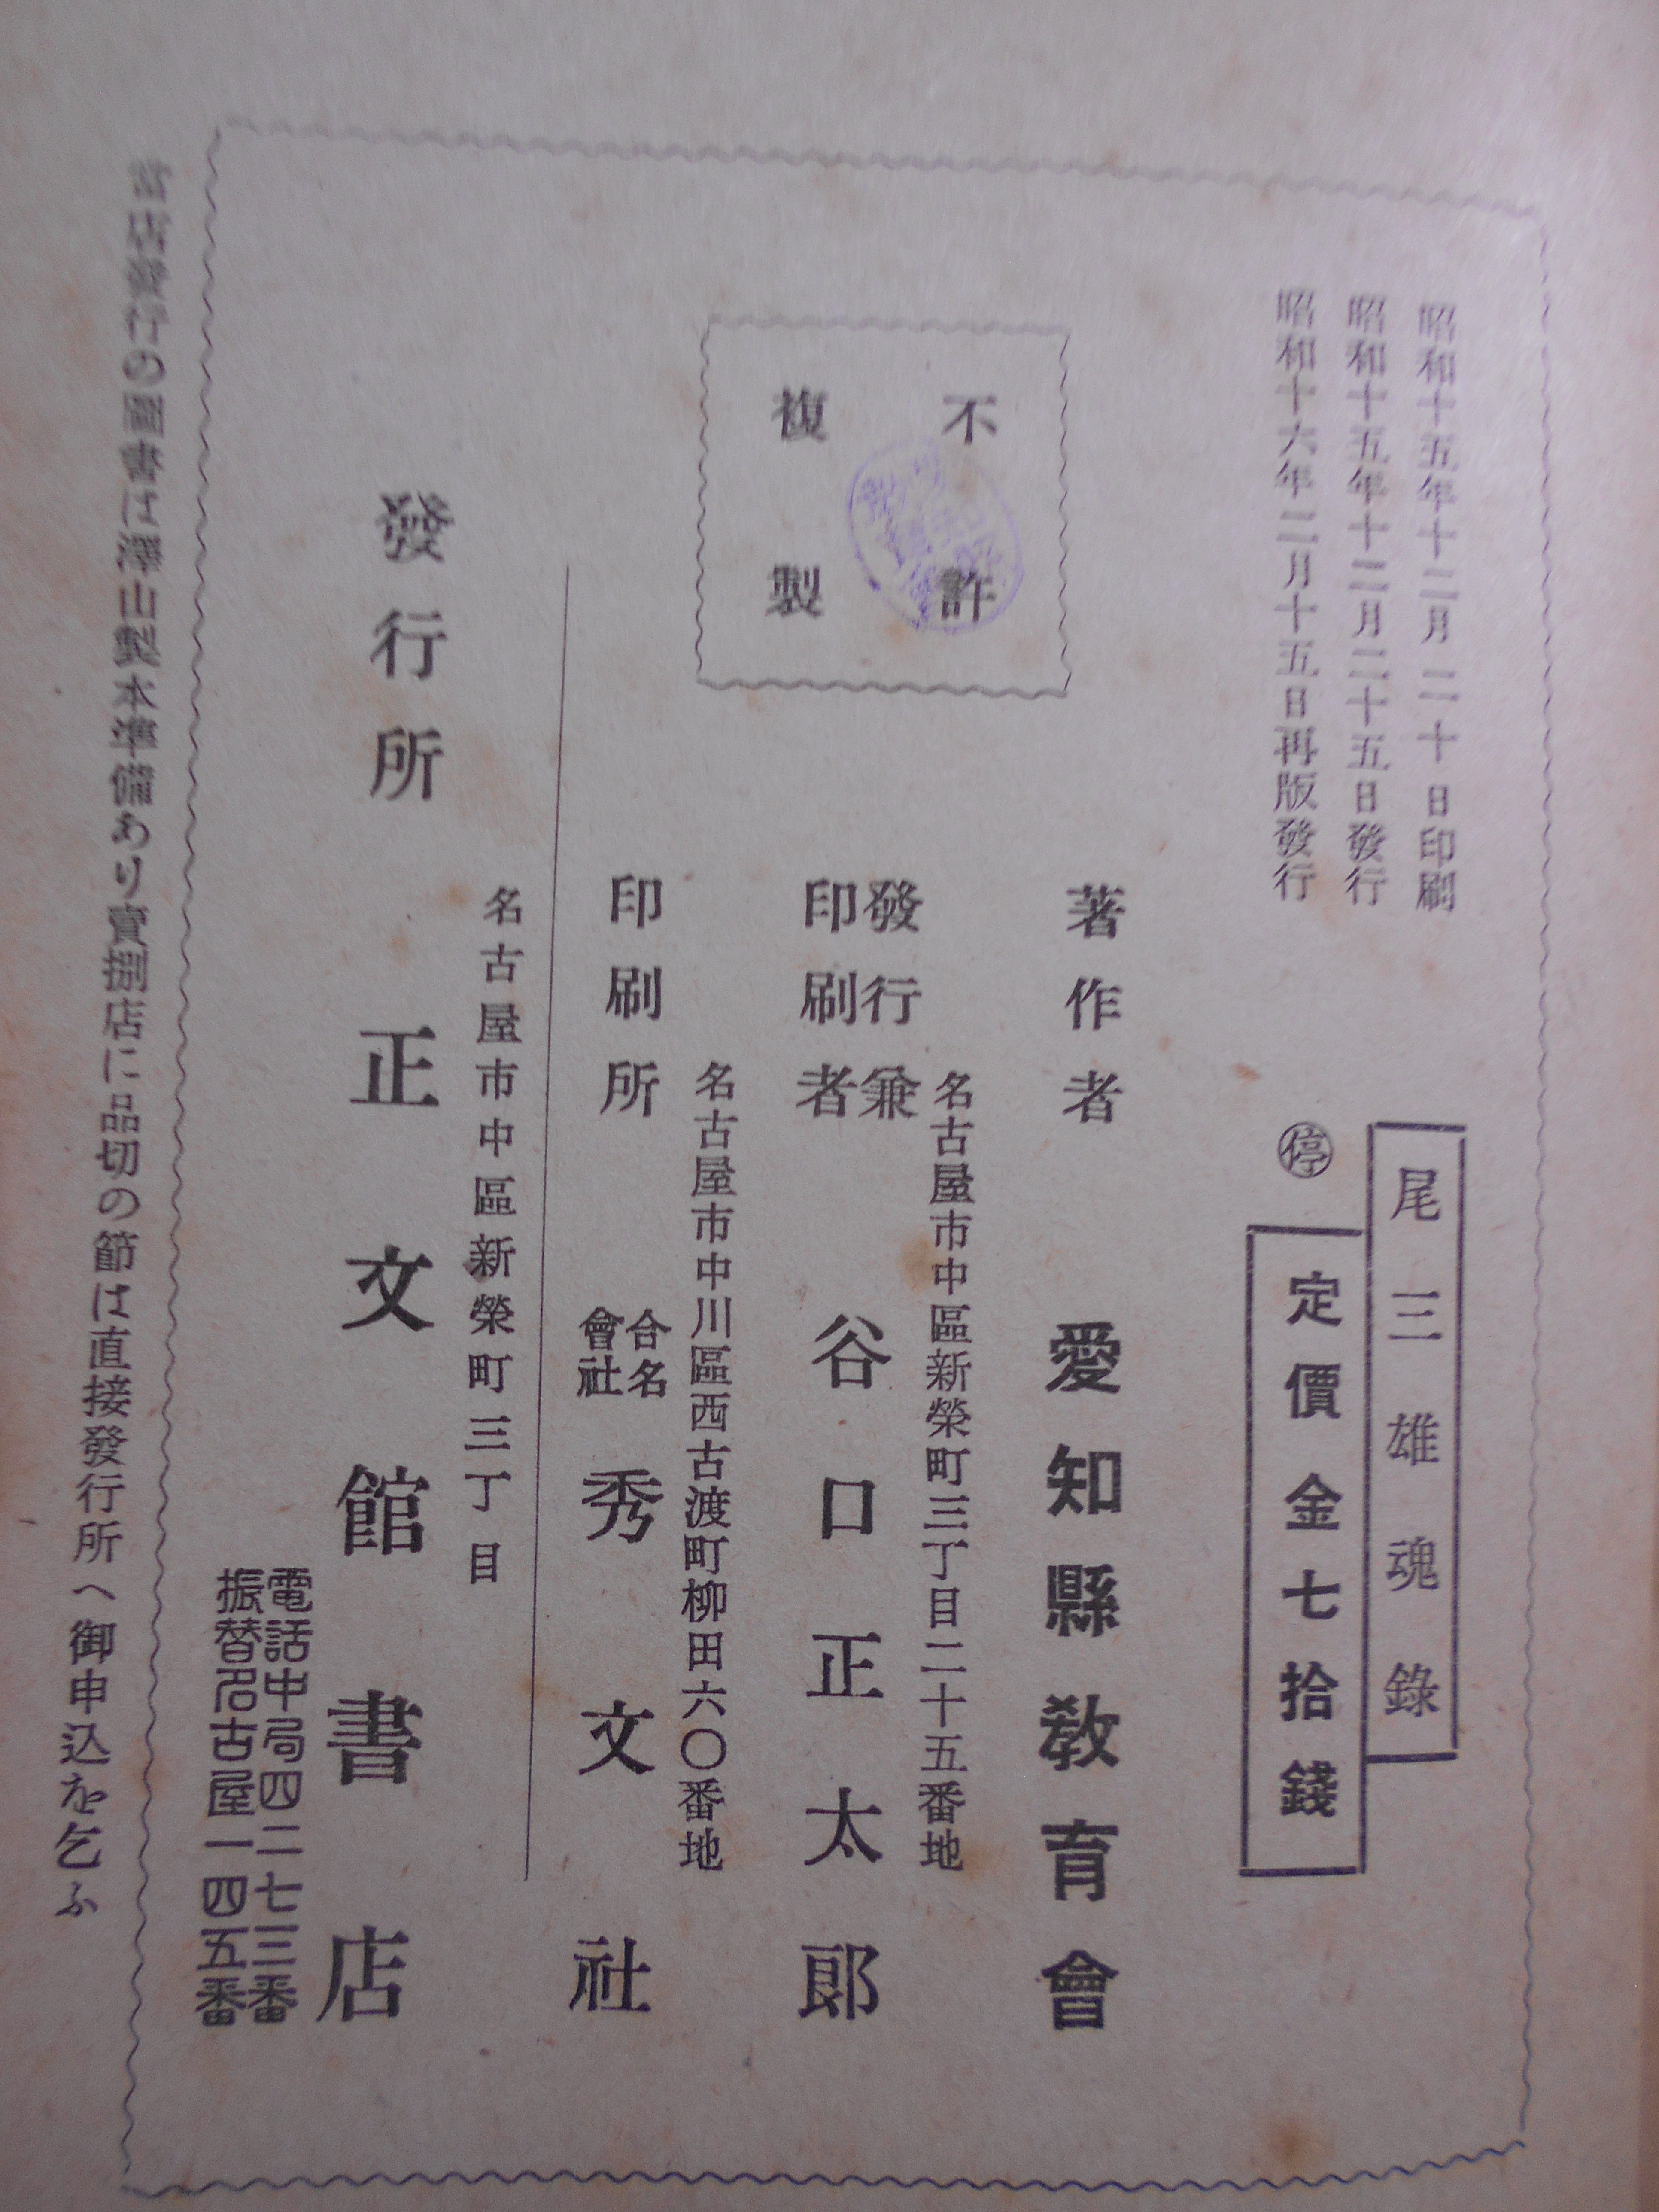 昭和十五年十二月二十日印刷
昭和十五年十二月二十五日發行
昭和十六年二月十五日再版發行
尾三雄魂錄
停
定價金七拾錢
不許
複製
著作者 愛知縣教育會
名古屋市中區新榮町三丁目二十五番地
發行兼
印刷者 谷口正太郎
名古屋市中川區西古渡町柳田六〇番地
印刷所 合名會社 秀文社
名古屋市中區新榮町三丁目
發行所 正文館書店
電話中局四二七三番
振替名古屋一四五番
當店發行の圖書は澤山製本準備あり賣捌店に品切の節は直接發行所へ御申込を乞ふ